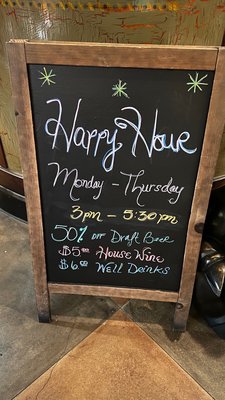 Happy Hour
Monday - Thursday
3pm - 5:30pm
50% off Draft Beer
$5.00 House Wine
$6.00 Well Drinks